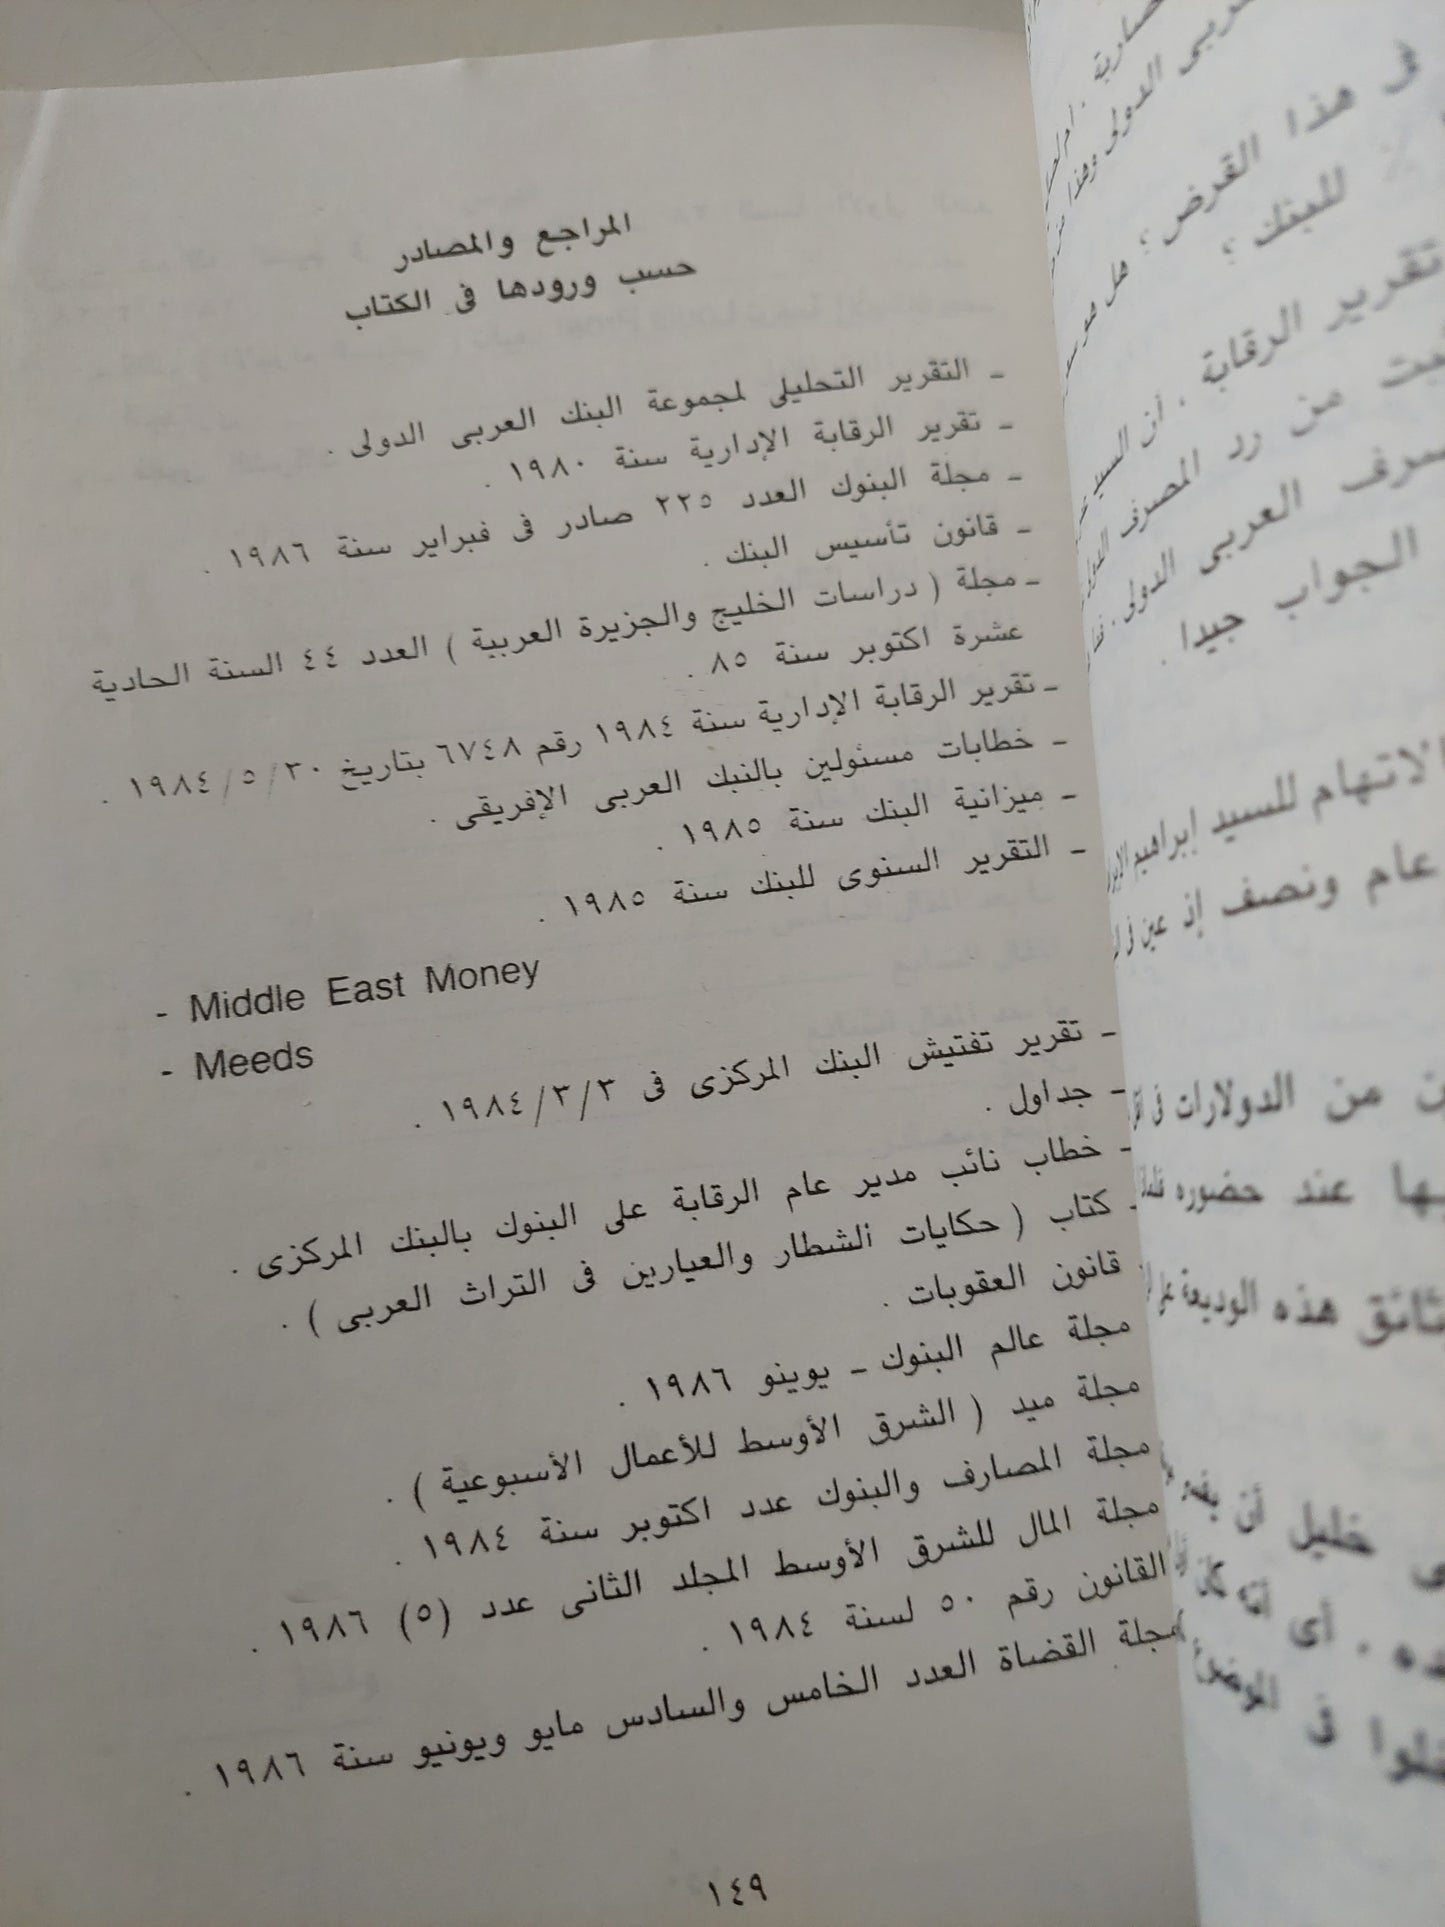 المراجع والمصادر
حسب ورودها فى الكتاب
ـ التقرير التحليلى لمجموعة البنك العربى الدولى .
ـ تقرير الرقابة الإدارية سنة ١٩٨٠ .
ـ مجلة البنوك العدد ٢٢٥ صادر فى فبراير سنة ١٩٨٦ .
ـ قانون تأسيس البنك .
ـ مجلة ( دراسات الخليج والجزيرة العربية ) العدد ٤٤ السنة الحادية
عشرة اكتوبر سنة ٨٥ .
ـ تقرير الرقابة الإدارية سنة ١٩٨٤ رقم ٦٧٤٨ بتاريخ ٣٠/٥/١٩٨٤ .
ـ خطابات مسئولين بالنبك العربى الإفريقى .
ـ ميزانية البنك سنة ١٩٨٥ .
ـ التقرير السنوى للبنك سنة ١٩٨٥ .
- Middle East Money
- Meeds
ـ تقرير تفتيش البنك المركزى فى ٣/٣/١٩٨٤ .
ـ جداول .
ـ خطاب نائب مدير عام الرقابة على البنوك بالبنك المركزى .
ـ كتاب ( حكايات الشطار والعيارين فى التراث العربى ) .
قانون العقوبات .
مجلة عالم البنوك ـ يوينو ١٩٨٦ .
مجلة ميد ( الشرق الأوسط للأعمال الأسبوعية ) .
مجلة المصارف والبنوك عدد اكتوبر سنة ١٩٨٤ .
مجلة المال للشرق الأوسط المجلد الثانى عدد (٥) ١٩٨٦ .
القانون رقم ٥٠ لسنة ١٩٨٤ .
مجلة القضاة العدد الخامس والسادس مايو ويونيو سنة ١٩٨٦ .
١٤٩
فى هذا القرض ؟ هل هو
للبنك ؟
تقرير الرقابة . أن السيد
من رد المصرف
العربى الدولى .
الجواب جيدا .
الاتهام للسيد إبراهيم
عام ونصف إذ عين فى
من الدولارات فى
عند حضوره
هذه الوديعة
خليل أن